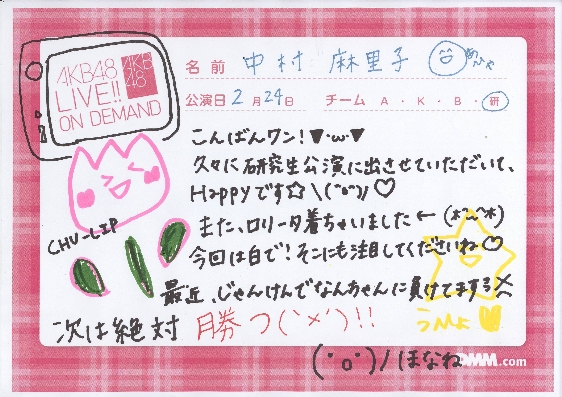 AKB48
LIVE!!
ON DEMAND
AKB
48
名前 中村 麻里子
公演日 2月24日 チーム A・K・B・研
こんばんワン!▼・ω・▼
久々に研究生公演に出させていただいて、
Happyです☆\(^o^)/♡
また、ロリータ着ちゃいました←(*^_^*)
今回は白で!そこにも注目してくださいね♡
CHU-LIP
最近、じゃんけんでなんちゃんに負けてます
次は絶対 勝つ(`・×・´)!!
(・o・)/ほなね
DMM.com